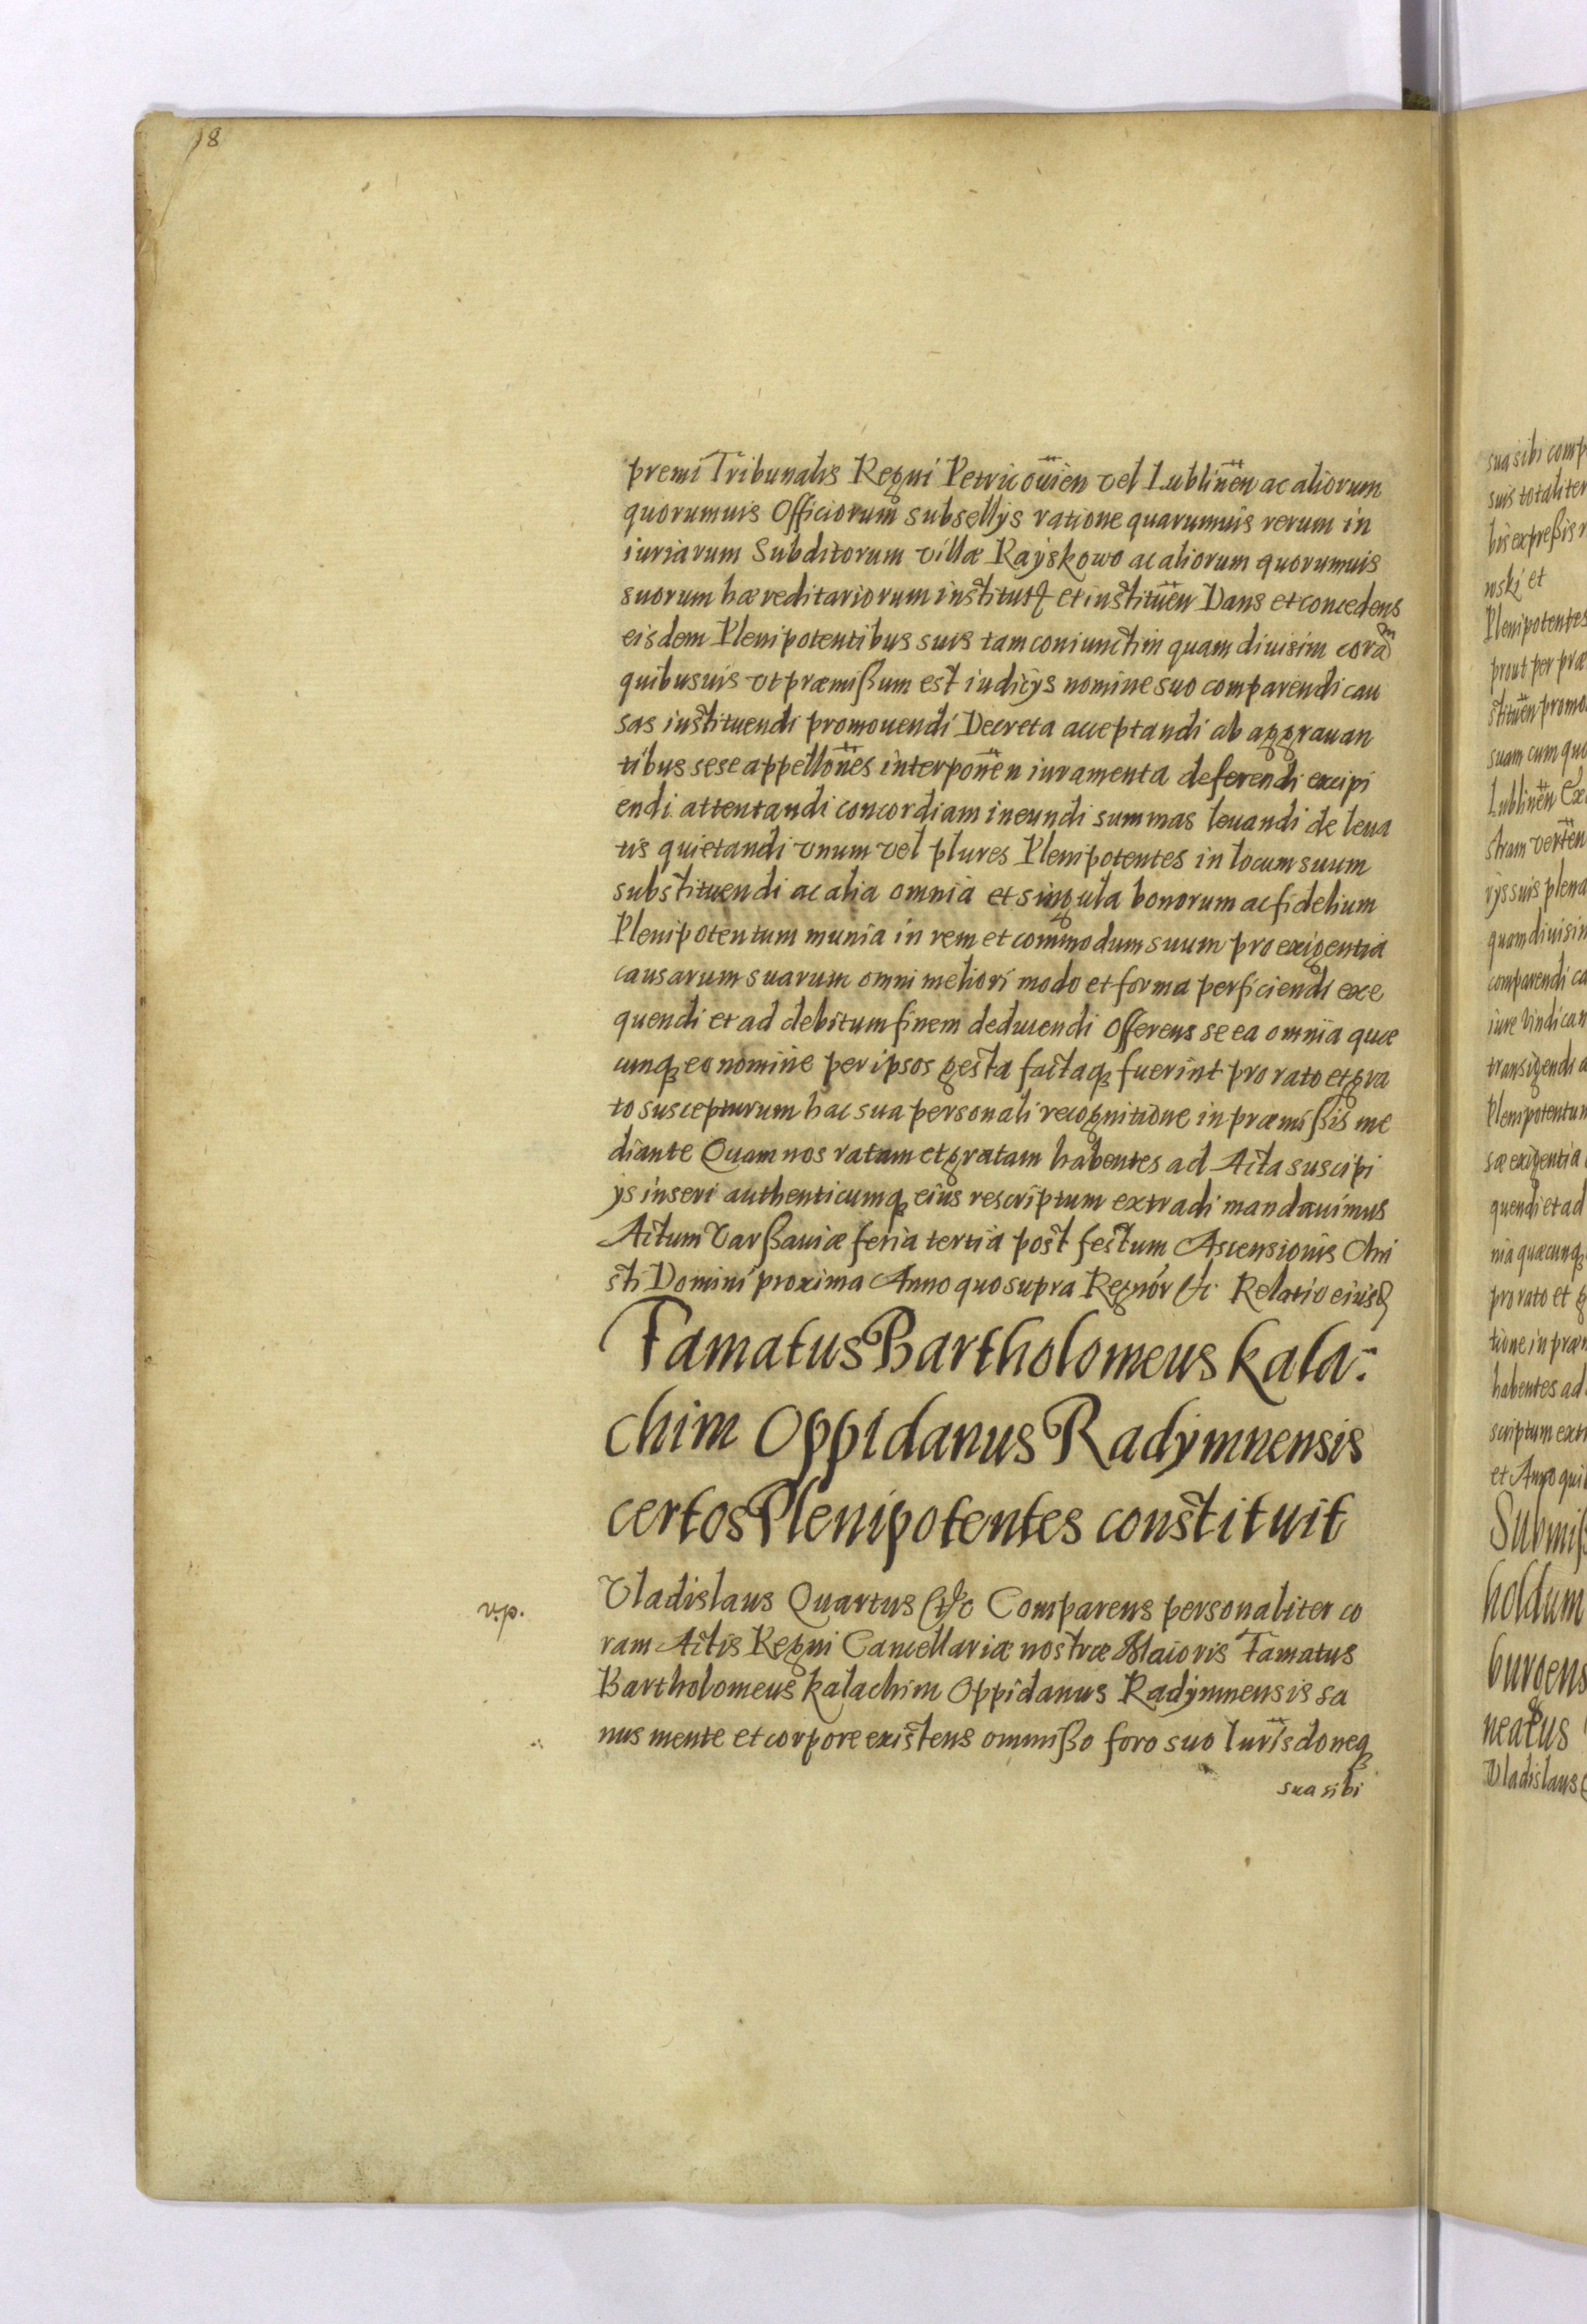 18
premi Tribunalis Regni Petricovien̄ vel Lublinen̄ ac aliorum
quorumuis Officiorum subsellÿs ratione quarumuis rerum in
iuriarum Subditorum villæ Rayskowo ac aliorum quorumuis
suorum hæreditariorum instituit et instituen̄ Dans et concedens
eisdem Plenipotentibus suis tam coniunctim quam diuisim coram
quibusuis vt præmißum est iudicÿs nomine suo comparendi cau
sas instituendi promouendi Decreta acceptandi ab aggrauan
tibus sese appellōnes interponen̄ iuramenta deferendi excipi
endi attentandi concordiam ineundi summas leuandi de leua
tis quietandi vnum vel plures Plenipotentes in locum suum
substituendi ac alia omnia et singula bonorum ac fidelium
Plenipotentum munia in rem et commodum suum pro exigentia
causarum suarum omni meliori modo et forma perficiendi exe
quendi et ad debitum finem deducendi Offerens se ea omnia quæ
cunq; eo nomine per ipsos gesta factaq; fuerint pro rato et gra
to suscepturum hac sua personali recognitione in præmißis me
diante Quam nos ratam et gratam habentes ad Acta suscipi
ÿs inseri authenticumq; eius rescriptum extradi mandauimus
Actum Varßauiæ feria tertia post festum Ascensionis Chri
sti Domini proxima Anno quo supra Regnor &c. Relatio eiusd
Famatus Bartholomeus Kala:
chim Oppidanus Radÿmnensis
certos Plenipotentes constituit
v.p.
Vladislaus Quartus &c Comparens personaliter co
ram Actis Regni Cancellariæ nostræ Maioris Famatus
Bartholomeus Kalachim Oppidanus Radÿmnensis sa
nus mente et corpore existens ommißo foro suo Iurīsdoneq;
sua sibi
sua sibi comp
suis totaliter
bis expreßis
nski et
Plenipotentes
prout per præ
stituen̄ promo
suam cum quo
Lublinen̄ Ex
stram verten̄
rÿs suis plena
quam diuisim
comparendi ca
iure vindican
transigendi a
Plenipotentum
sæ exigentia
quendi et ad
nia quæcunq;
pro rato et g
tione in præm
habentes ad
scriptum extr
et Anno qui
Submiß
holdum
burgens
neatus
Vladislaus